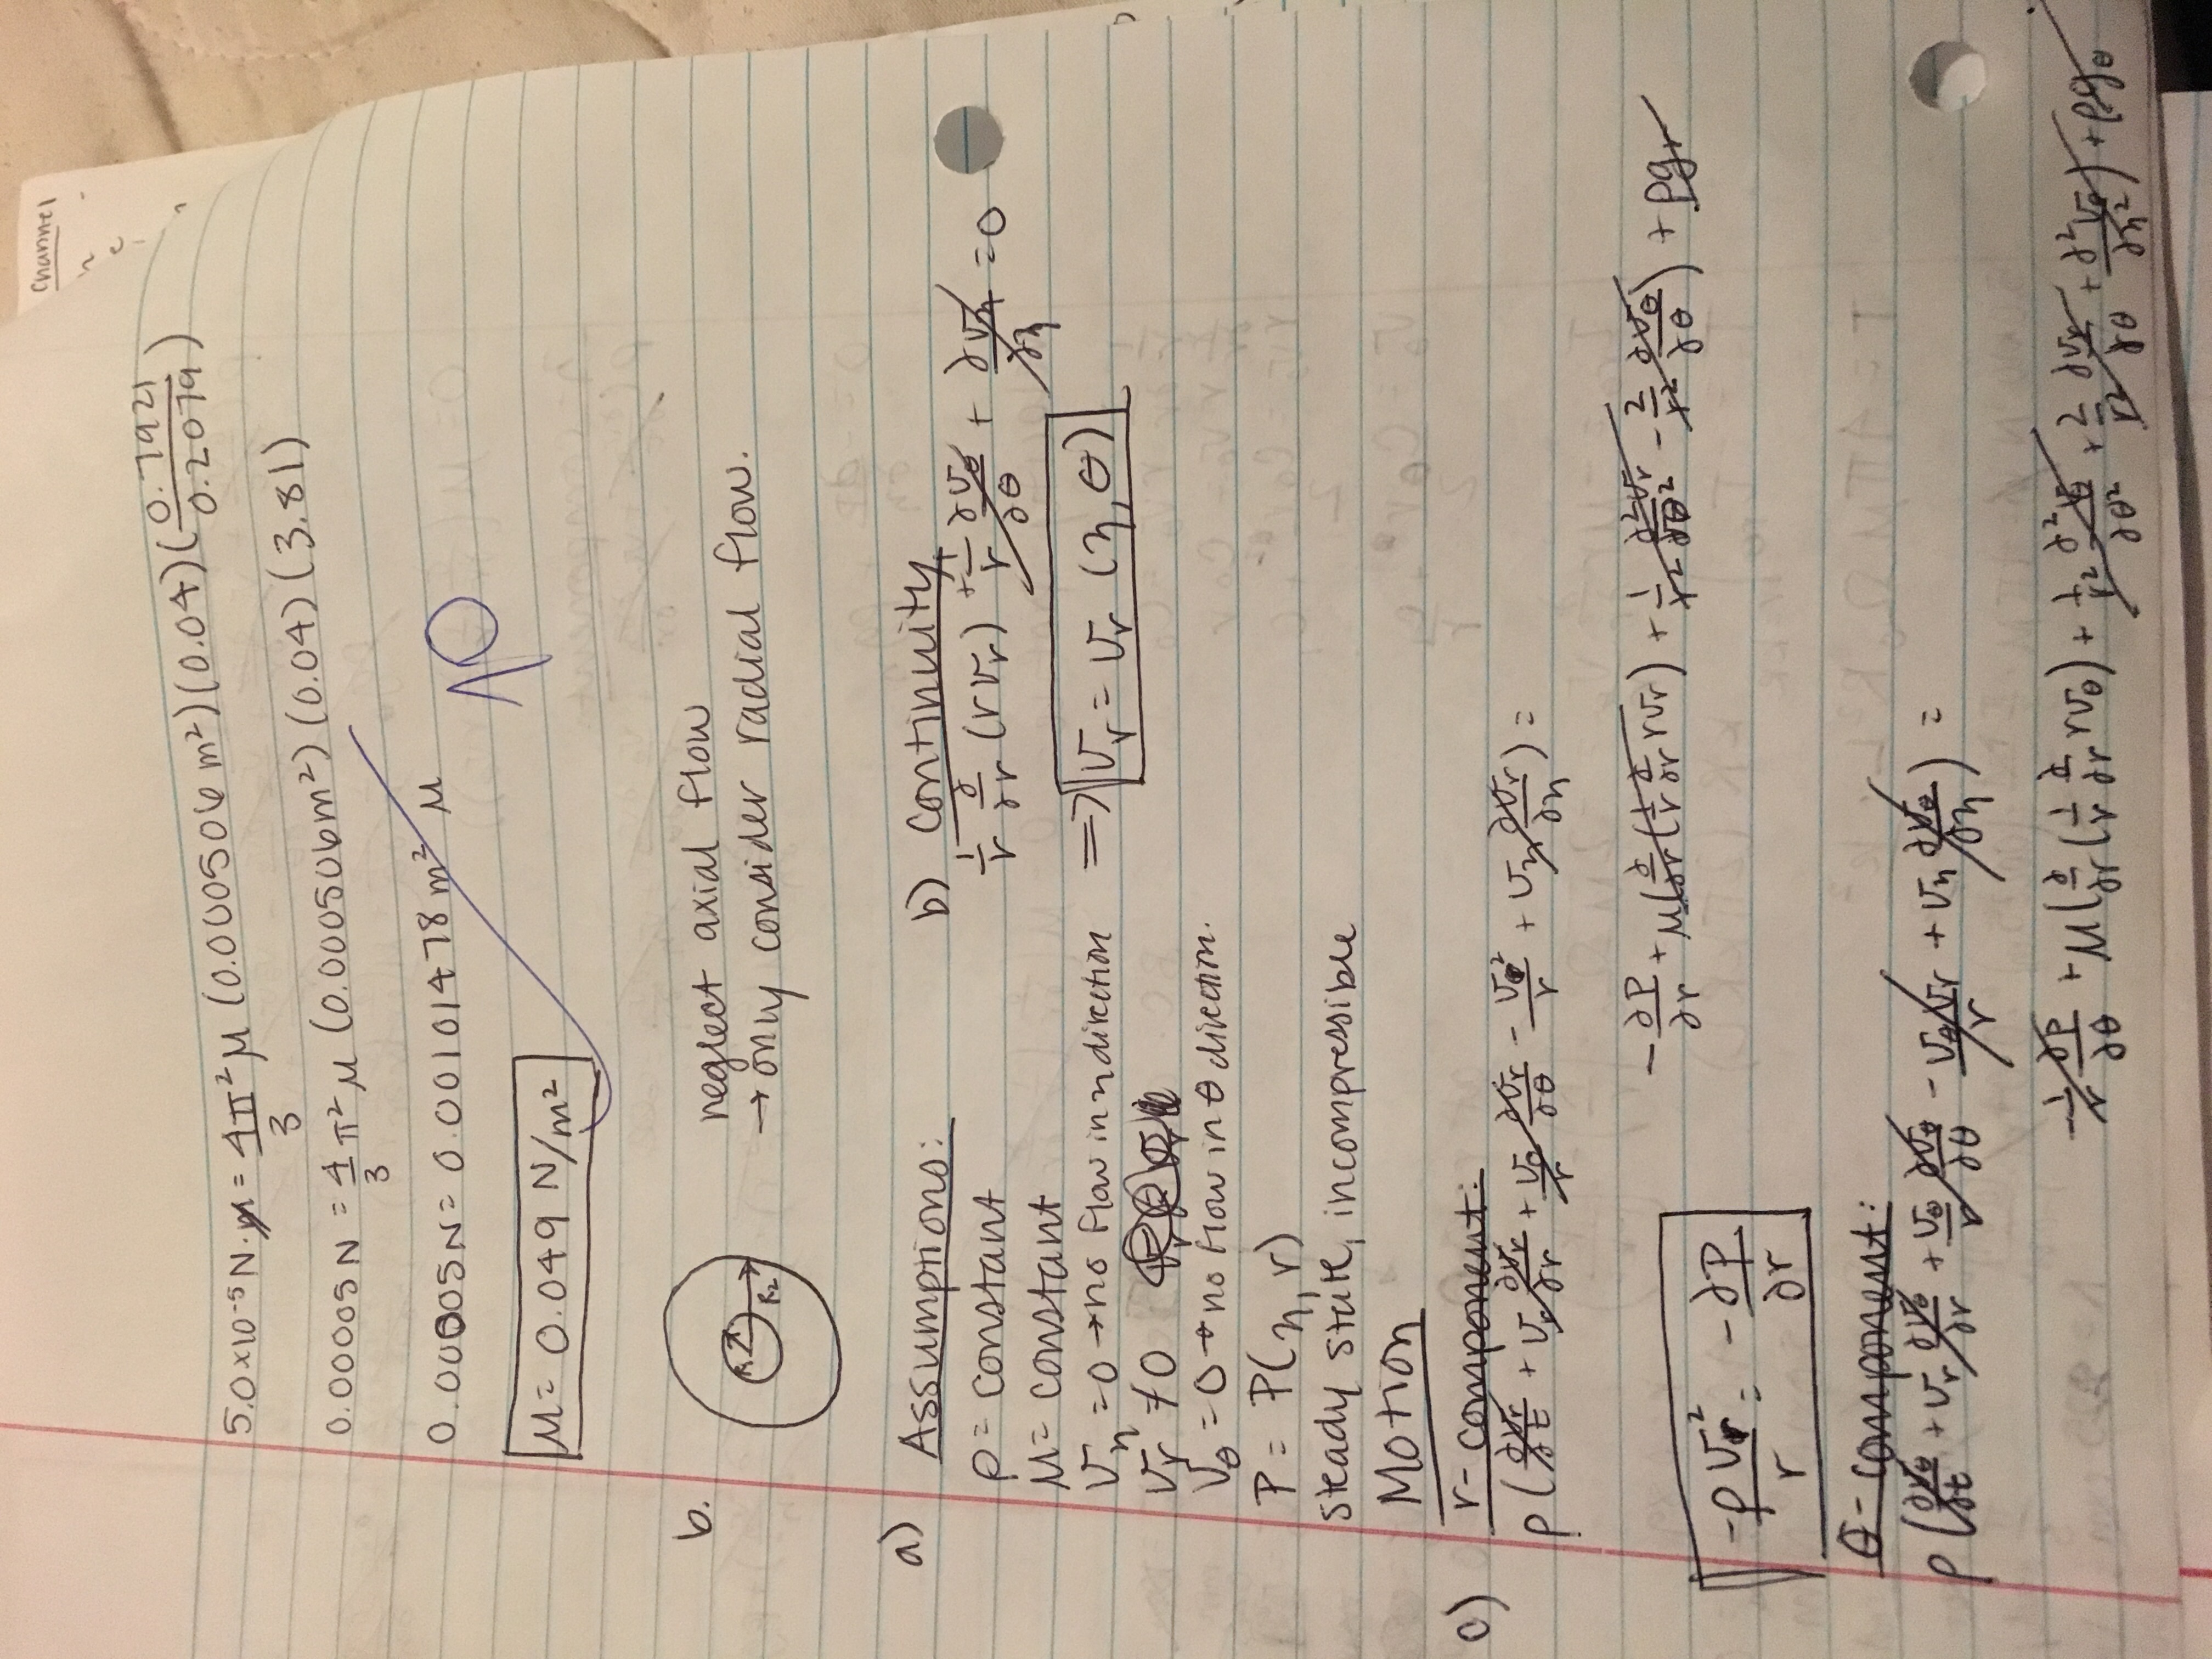 Channel
5.0×10⁻⁵ N·m = 4π²/3 μ (0.000506 m²)(0.04)(0.7921/0.2079)
0.00005N = 4/3 π² μ (0.000506m²)(0.04)(3.81)
0.00005N = 0.00101478 m² μ
10
μ = 0.049 N/m²
b.
R₂
neglect axial flow
→ only consider radial flow.
a) Assumptions:
ρ = constant
μ = constant
v_z = 0 → no flow in z direction
v_r ≠ 0
v_θ = 0 → no flow in θ direction.
P = P(z, r)
steady state, incompressible
b) continuity
1/r ∂/∂r (r v_r) + 1/r ∂v_θ/∂θ + ∂v_z/∂z = 0
⇒ v_r = v_r (z, θ)
Motion
c) r-component:
ρ(∂v_r/∂t + v_r ∂v_r/∂r + v_θ/r ∂v_r/∂θ - v_θ²/r + v_z ∂v_r/∂z) =
-∂P/∂r + μ(∂/∂r(1/r ∂/∂r r v_r) + 1/r² ∂²v_r/∂θ² - 2/r² ∂v_θ/∂θ) + ρg_r
-ρ v_r²/r = -∂P/∂r
θ-component:
ρ(∂v_θ/∂t + v_r ∂v_θ/∂r + v_θ/r ∂v_θ/∂θ - v_θ v_r/r + v_z ∂v_θ/∂z) =
-1/r ∂P/∂θ + μ(∂/∂r(1/r ∂/∂r r v_θ) + 1/r² ∂²v_θ/∂θ² + 2/r² ∂v_r/∂θ + ∂²v_θ/∂z²) + ρg_θ